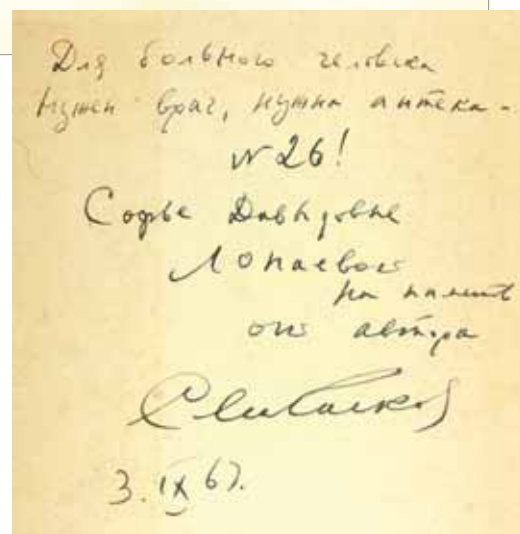 Для больного человека
нужен врач, нужна аптека -
N 26!
Софье Давидовне
Лопаевой
на память
от автора
С Михалков
3. IX 67.